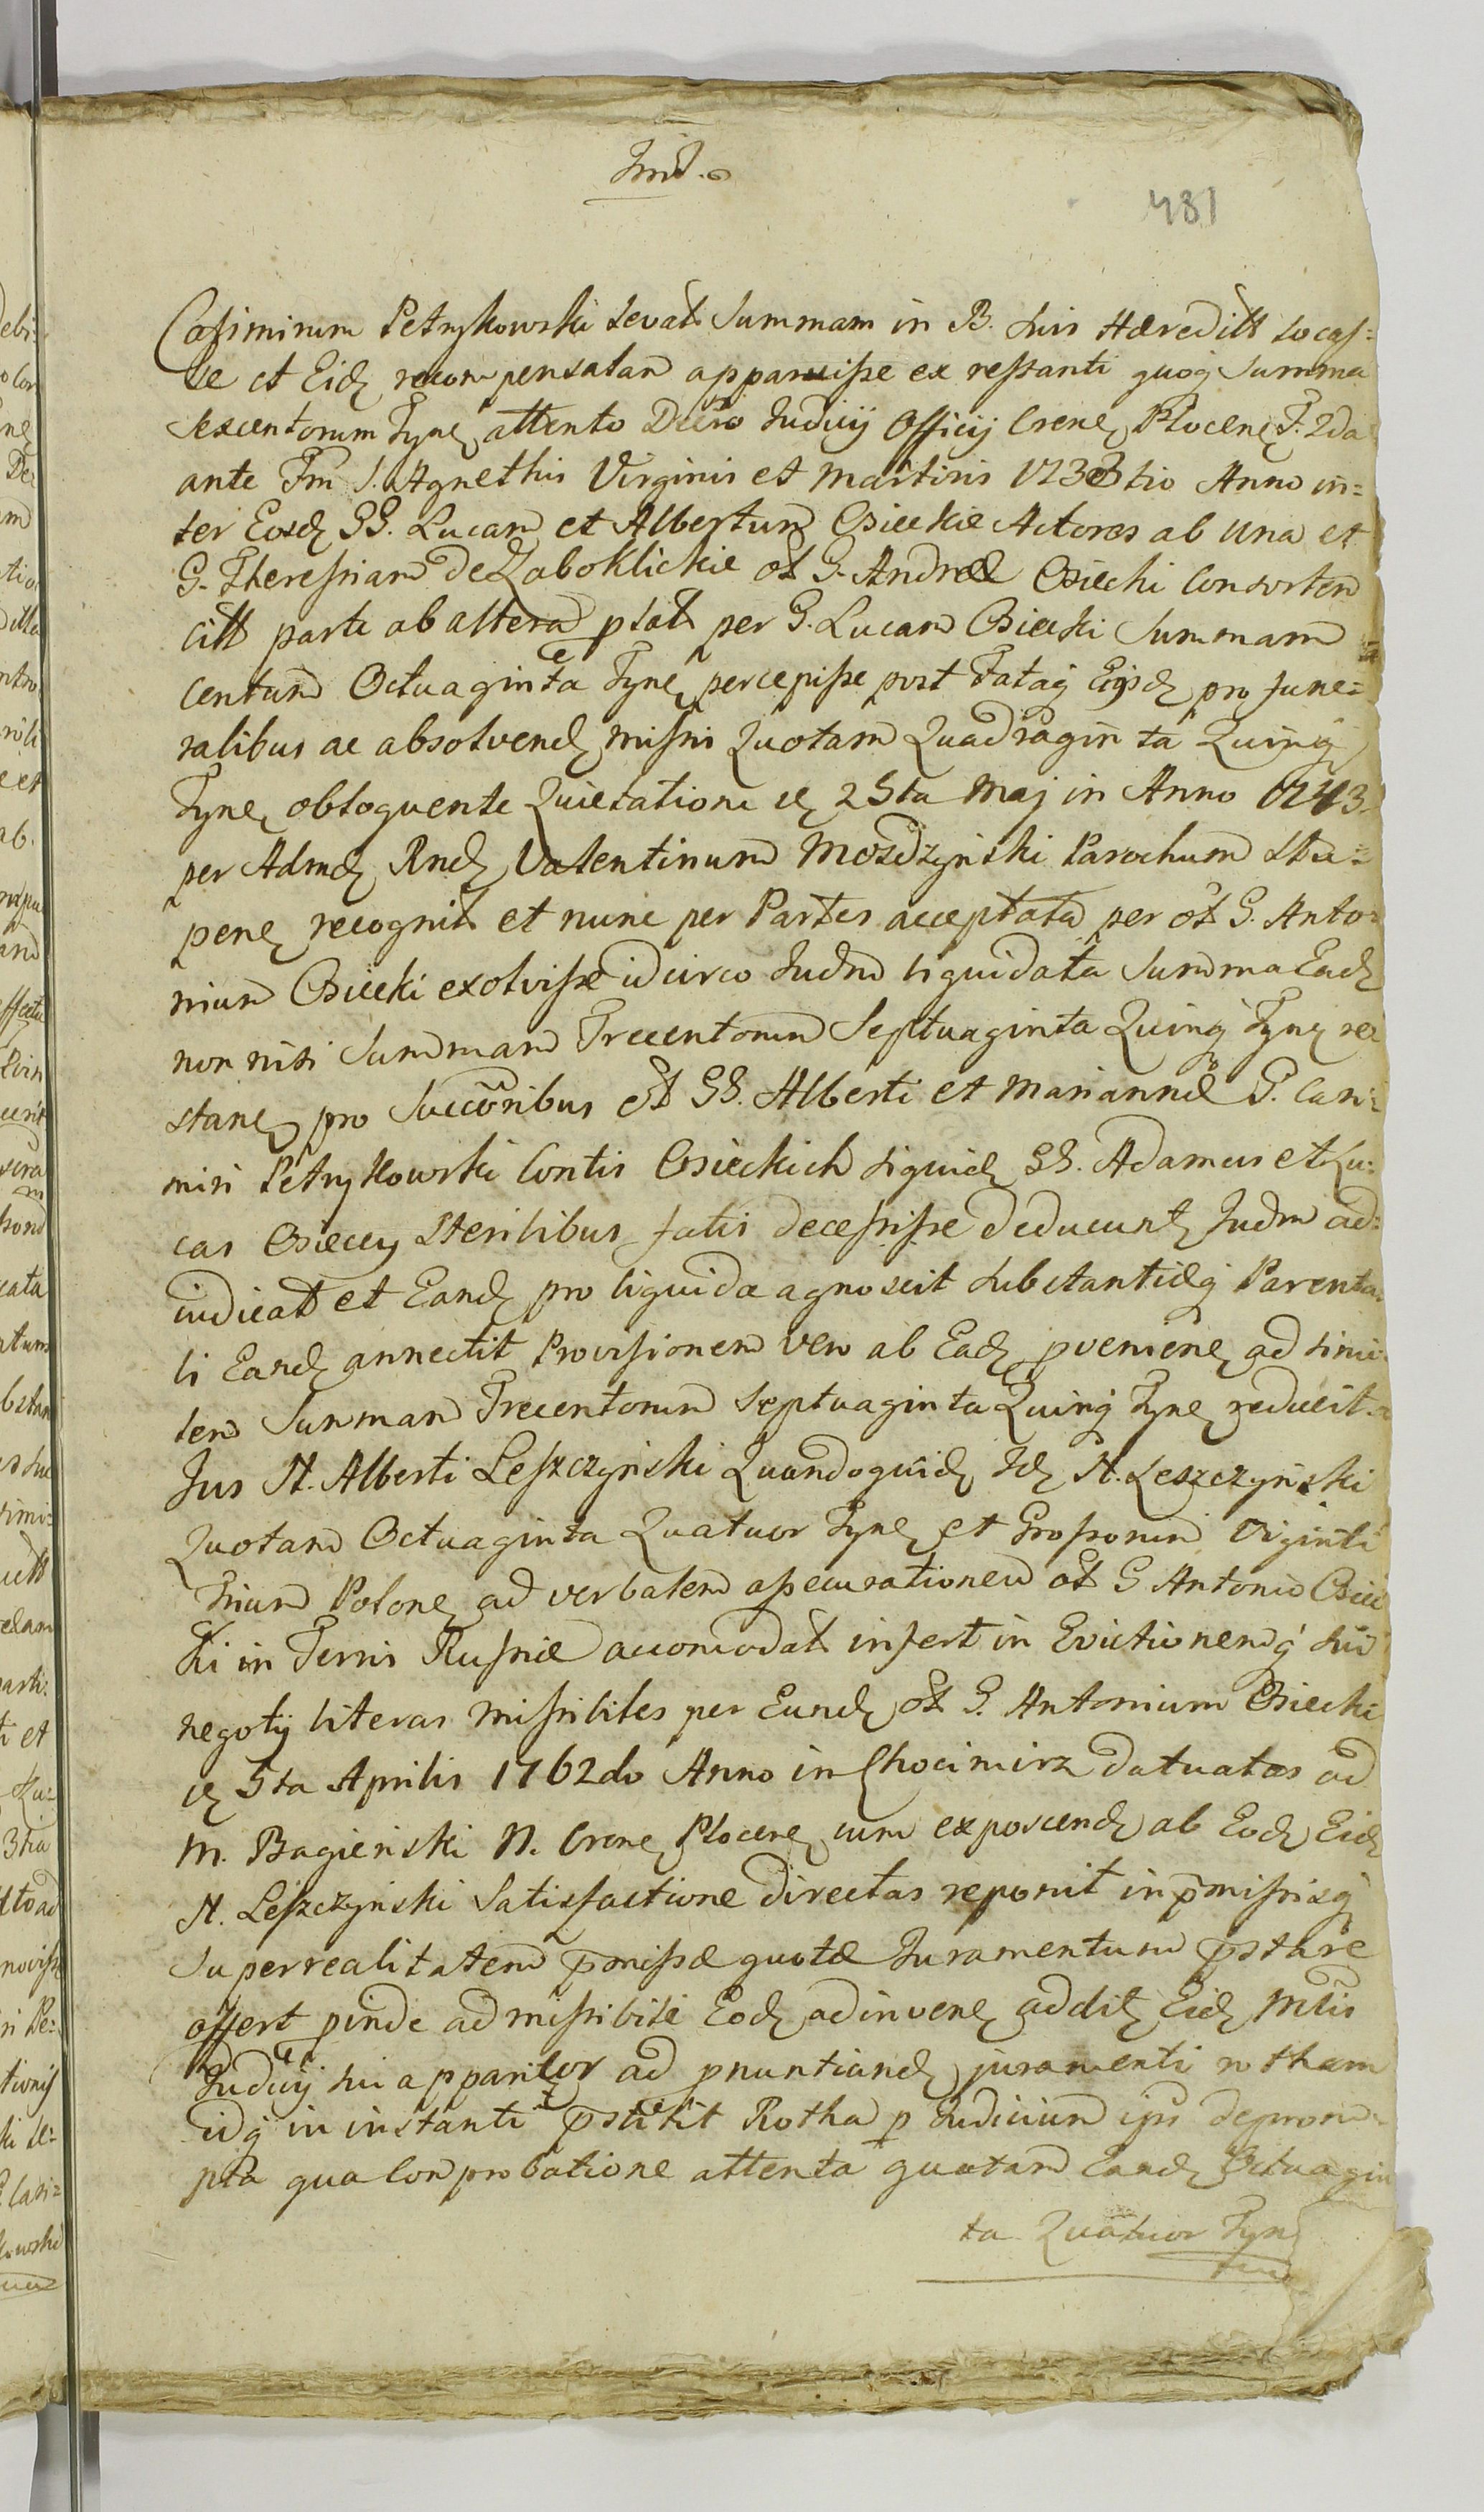 481
Casimirum Petrykowski levat Summam in B. suis Hæreditt locas=
se et Eid recompensatam apparuisse ex restanti quoq Summa
sexcentorum Fyne attento Decro Judicij Officij Crene Plocene F. 2da
ante Fm S. Agnethis Virginis et Martiris 1733tio Anno in=
ter Eosd GG. Lucam et Albertum Osieckie Actores ab una et
G. Theressiam de Zaboklickie ol G. Andreæ Osiecki Consortem
Citt parte ab altera plat per G. Lucam Osiecki Summam
Centum Octuaginta Fyne percepisse post Fataq Eijsd pro fune=
ralibus ac absolvend missis Quotam Quadraginta Quinq
Fyne obloquente Quietatione de 25ta Maj in Anno 1743
per Admd Rnd Valentinum Mosdzynski Parochum Stu=
pene recognit et nunc per Partes acceptata per ol G. Anto=
nium Osiecki exolvisse idcirco Judm liquidata Summa Ead
non nisi Summam Trecentorum Septuaginta Quinq Fyne re
stane pro Succoribus ol GG. Alberti et Mariannæ G. Casi=
miri Petrykowski Contis Osieckich siquid GG. Adamus et Lu=
cas Osieccy Sterilibus fatis decessisse deducunt Judm ad=
iudicat et Eand pro liquida agnoscit Substantiæq Parenta
li Eand annectit Provisionem vero ab Ead pveniene ad simi
lem Summam Trecentorum Septuaginta Quinq Fyne reducit.
Jus N. Alberti Leszczynski Quandoquid Id N. Leszczynski
Quotam Octuaginta Quatuor Fyne et Grossorum Viginti
Trium Polone ad verbalem assecurationem ol G Antonio Osiec
ki in Terris Russiæ accomodat infert in Evictionemq sui
negotij literas missibiles per Eund ol G. Antonium Osiecki
de 5ta Aprilis 1762do Anno in Chocimirz datuatas ad
M. Bagienski N. Crene Plocene cum exposcend ab Eod Eid
N. Leszczynski Satisfactione directas reponit in pmissisq
Super realitatem pmissæ quotæ Juramentum pstare
offert pinde admissibile Eod adinvene addit Eid Mtis
Judicij sui apparitor ad pnuntiand juramenti rotham
idq in instanti pstitit Rotha p Judicium ipsi deprom=
pta qua Conprobatione attenta quotam Eand Octuagin
ta Quatuor Fyn